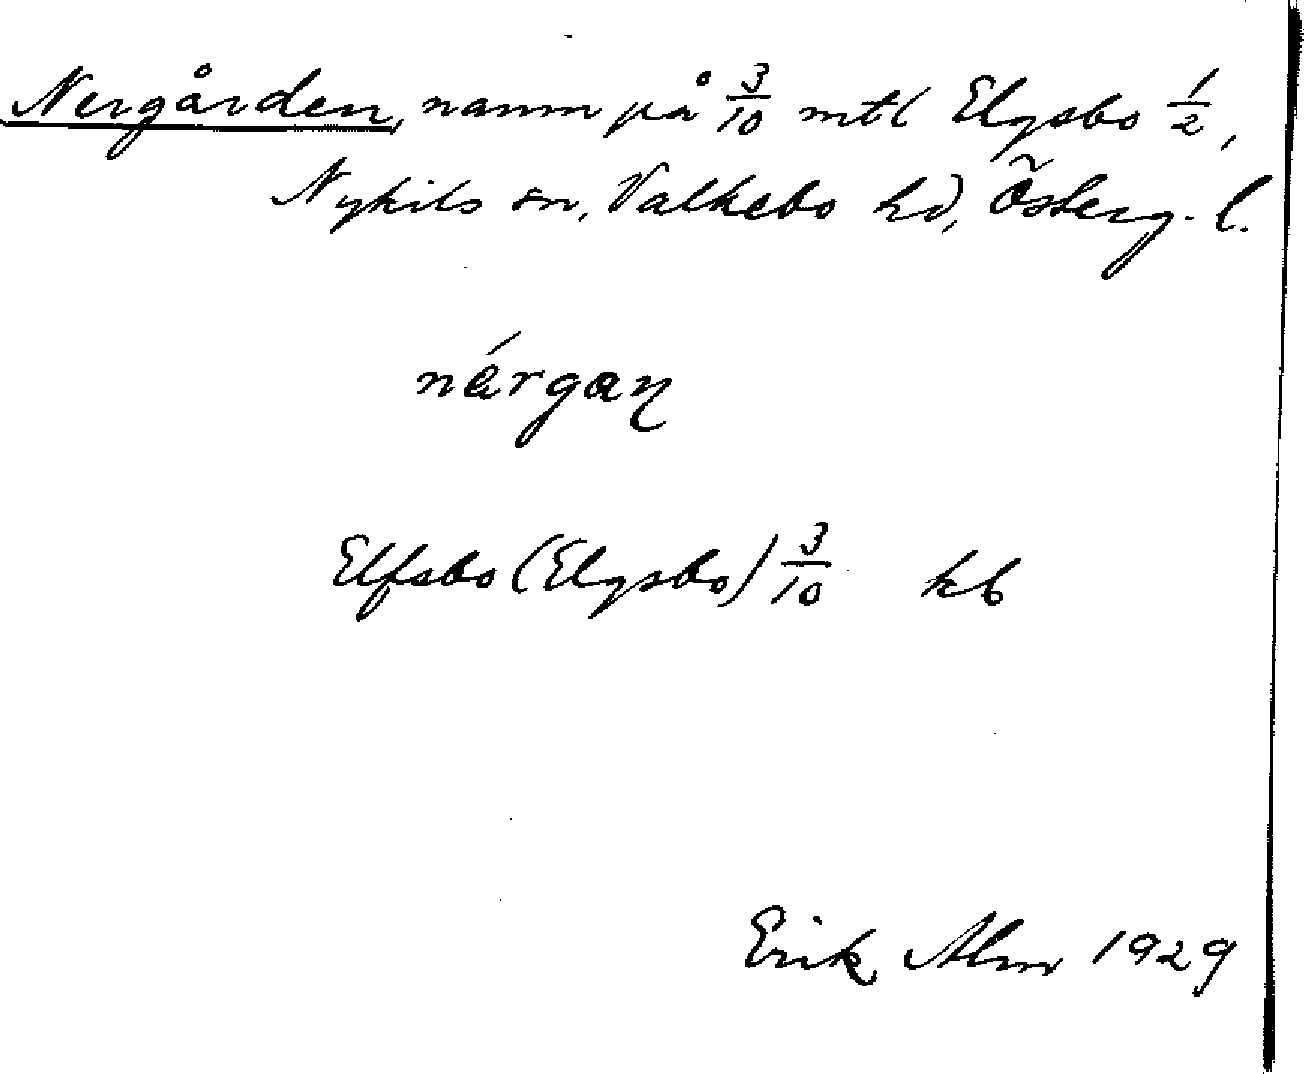 Nergården, namn på 3/10 mtl Elgsbo 1/2,
Nykils sn, Valkebo hd, Österg. l.
nérgaɳ
Elfsbo (Elgsbo) 3/10 kb
Erik Alm 1929